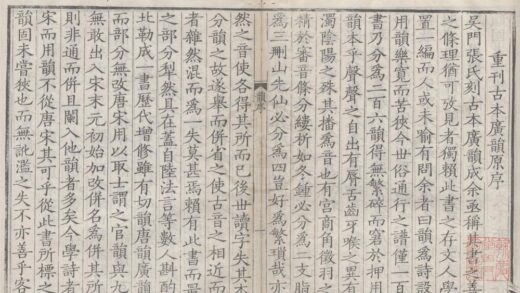 重刊古本廣韻原序
吳門張氏刻古本廣韻成余亟稱其書之善
之條理猶可攷見者獨賴此書之存文人學
置一編而人或未喻有問余者曰韻為詩設
用韻樂寬而苦狹今世俗通行之譜僅一百
書乃分為二百六韻得無繁碎而窘於押用
韻本乎聲聲之自出有脣舌齒牙喉之異有
濁陰陽之殊其播為音也有宮商角徵羽之
精於審音條分縷析如冬鍾必分為二支脂
為三刪山先仙必分為四豈好為繁瑣哉亦
然之音使各得其所而已後世讀字失其本
分韻之故遂舉而併省之使古音之相近而
者雜然混而為一失莫甚焉賴有此書而最
之部分犁然具在蓋自陸法言等數人斟酌
此勒成一書歷代增修雖有切韻唐韻廣韻
而部分無改唐宋用以取士謂之官韻與九
無敢出入宋末元初始加改併名為併其所
則非通而併且闌入他韻者多矣今學詩者
宋而用韻不從唐宋其可乎從此書所標之
韻固未嘗狹也而無訛濫之失不亦善乎客